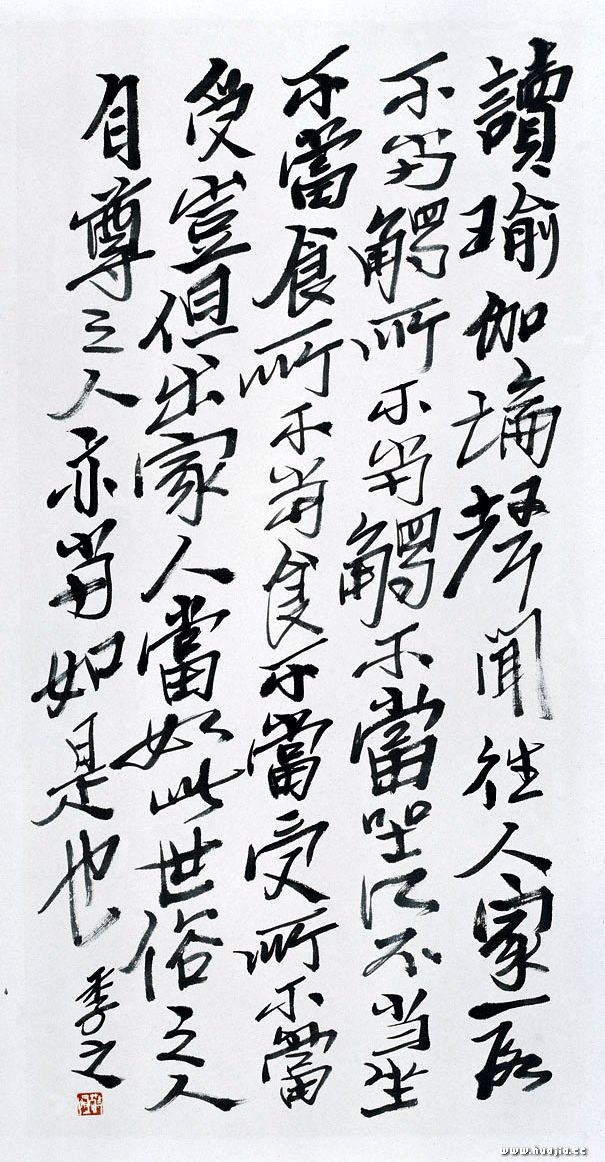 讀瑜伽論聲聞往人家一段
不當觸所不當觸不當坐所不当坐
不當食所不當食不當受所不當
受豈但出家人當如此世俗之人
自尊之人亦當如是也
www.huajia.cc